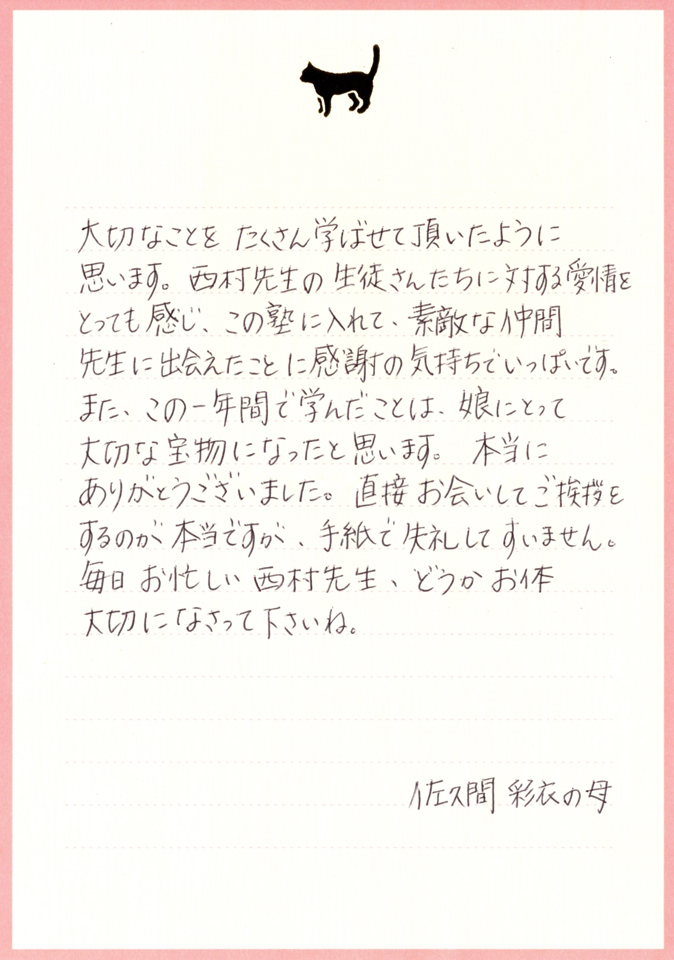 大切なことを たくさん学ばせて頂いたように
思います。西村先生の生徒さんたちに対する愛情を
とっても感じ、この塾に入れて、素敵な仲間
先生に出会えたことに感謝の気持ちでいっぱいです。
また、この一年間で学んだことは、娘にとって
大切な宝物になったと思います。 本当に
ありがとうございました。直接お会いしてご挨拶を
するのが本当ですが、手紙で失礼してすいません。
毎日お忙しい西村先生、どうかお体
大切になさって下さいね。
佐久間 彩衣の母